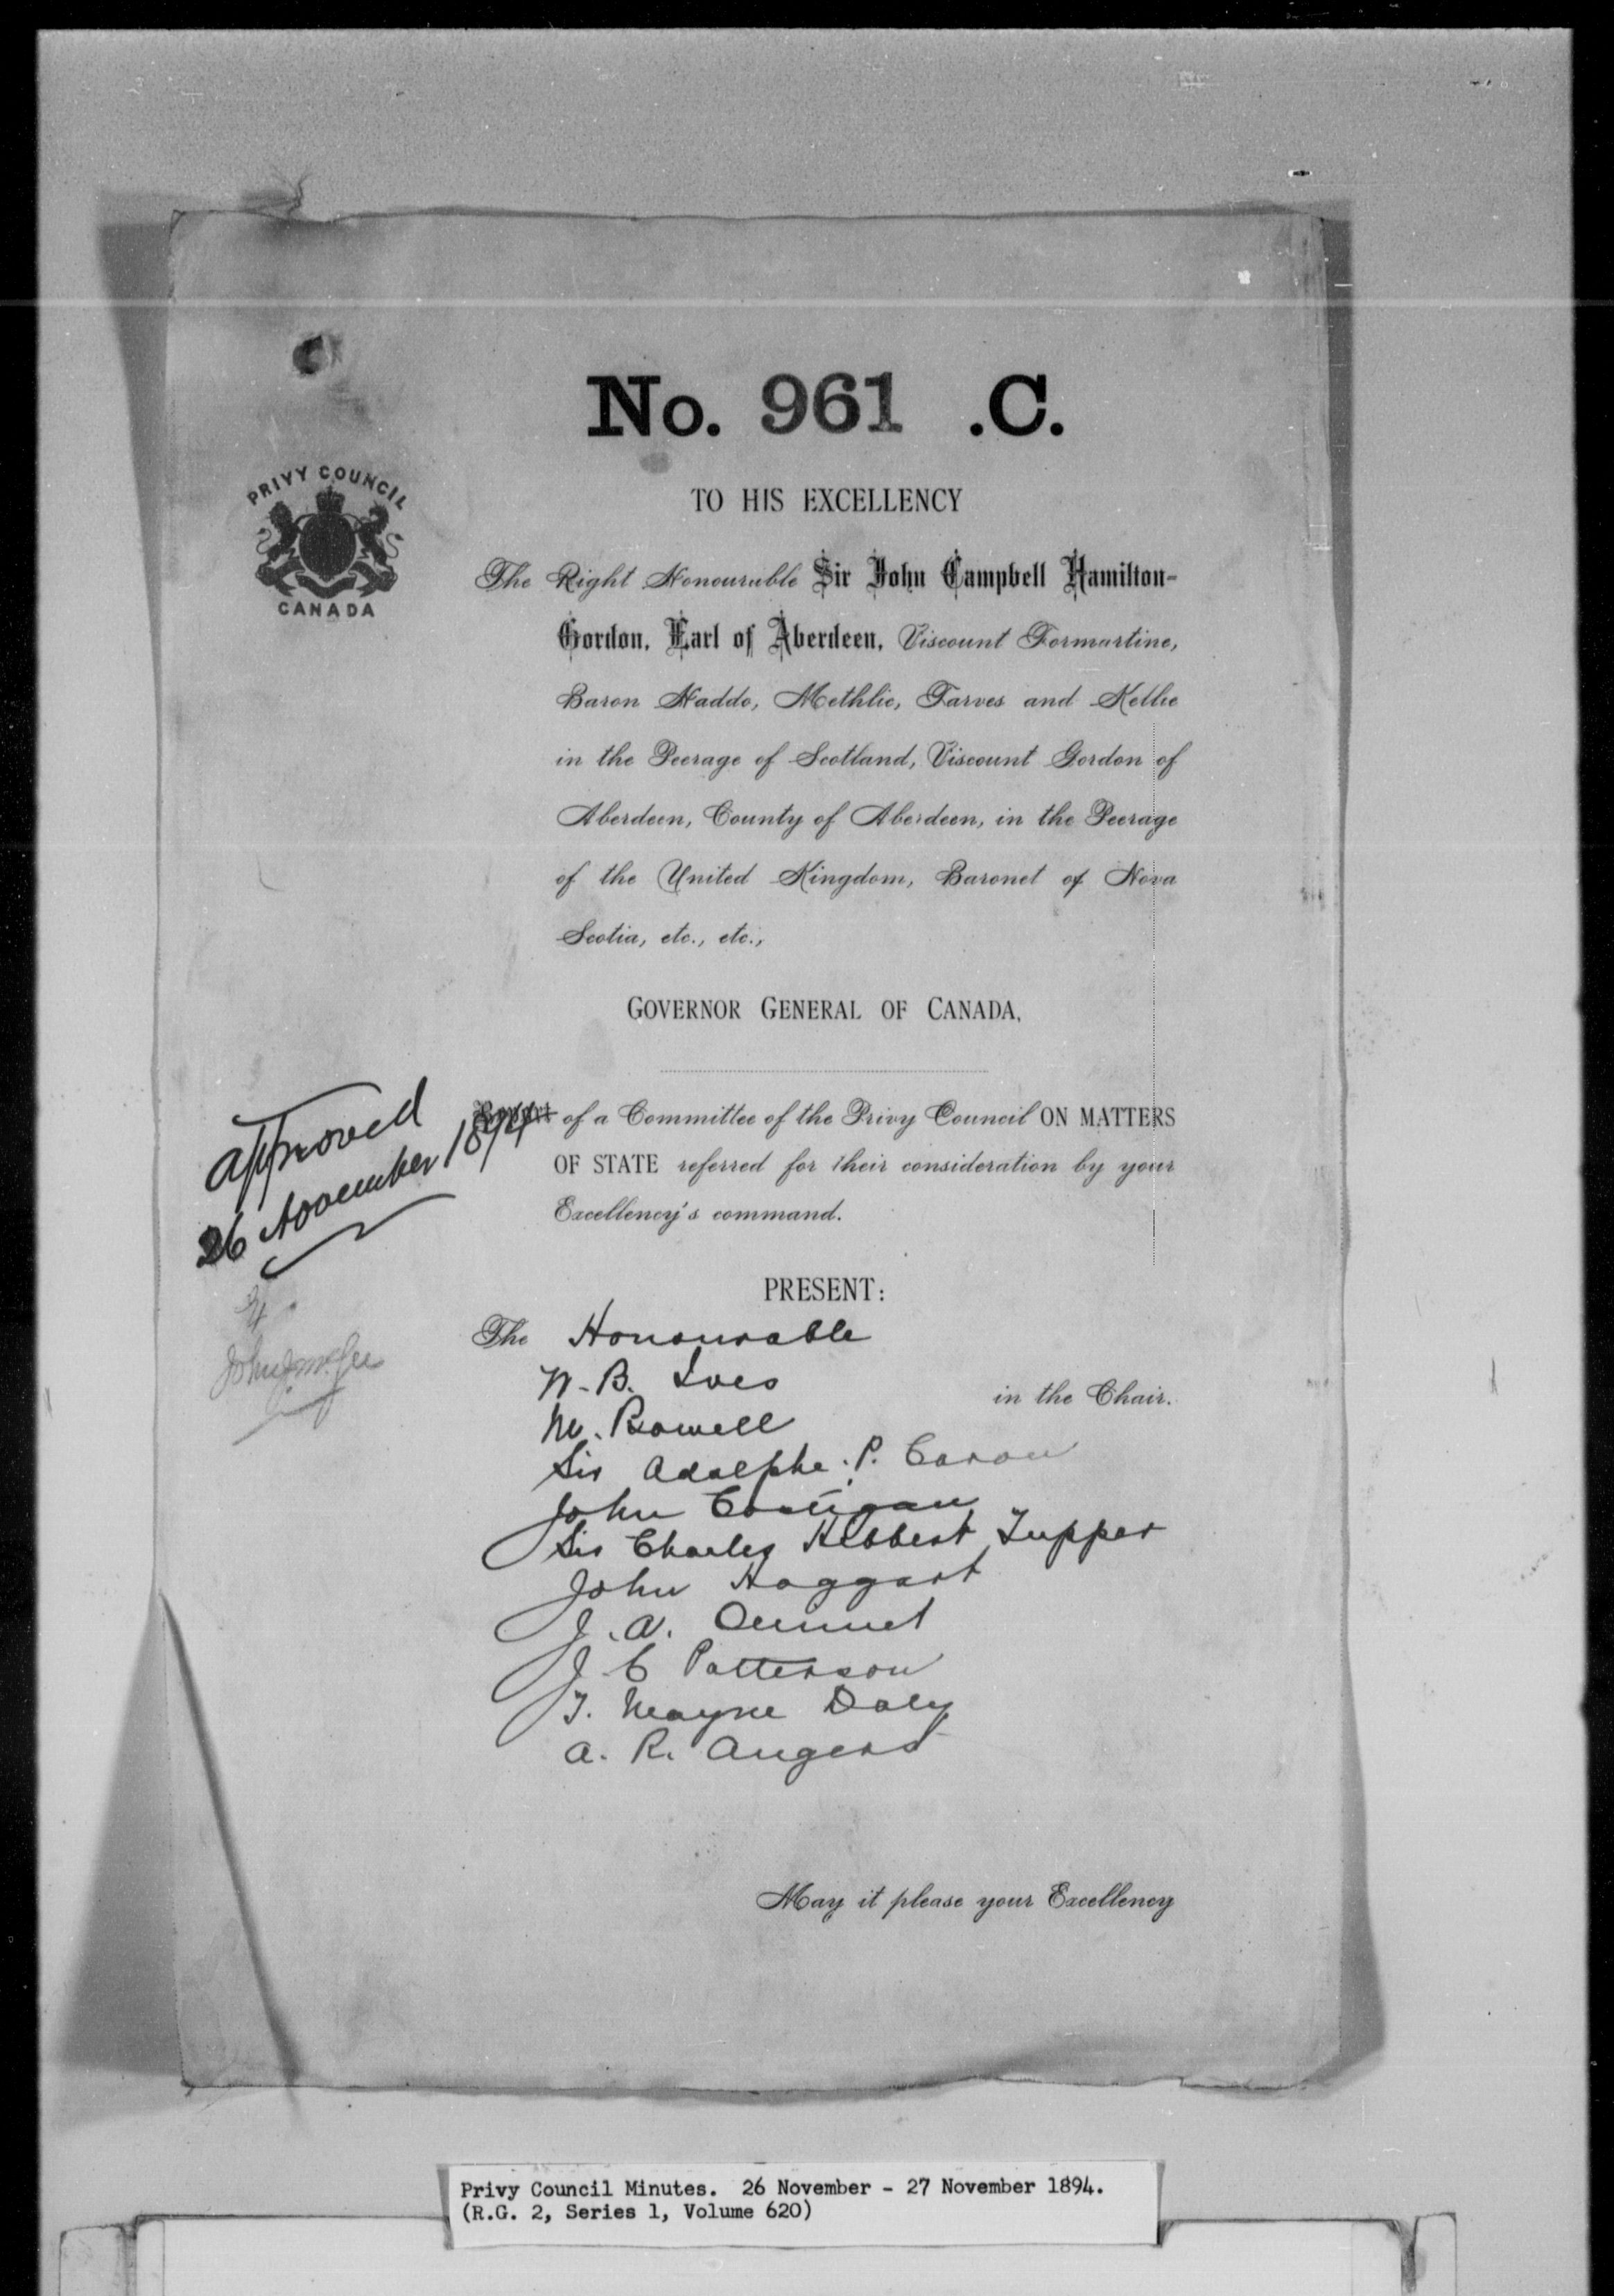 No. 961 .C.
PRIVY COUNCIL
CANADA
TO HIS EXCELLENCY
The Right Honourable Sir John Campbell Hamilton-
Gordon, Earl of Aberdeen, Viscount Formartine,
Baron Haddo, Methlic, Tarves and Kellie
in the Peerage of Scotland, Viscount Gordon of
Aberdeen, County of Aberdeen, in the Peerage
of the United Kingdom, Baronet of Nova
Scotia, etc., etc.,
GOVERNOR GENERAL OF CANADA,
approved
26 November 1894
Report of a Committee of the Privy Council ON MATTERS
OF STATE referred for their consideration by your
Excellency's command.
PRESENT:
The Honourable
W. B. Ives in the Chair.
M. Bowell
Sir Adolphe. P. Caron
John Costigan
Sir Charles Hibbert Tupper
John Haggart
J. A. Ouimet
J C Patterson
T. Mayne Daly
A. R. Angers
John J McGee
May it please your Excellency
Privy Council Minutes. 26 November - 27 November 1894.
(R.G. 2, Series 1, Volume 620)